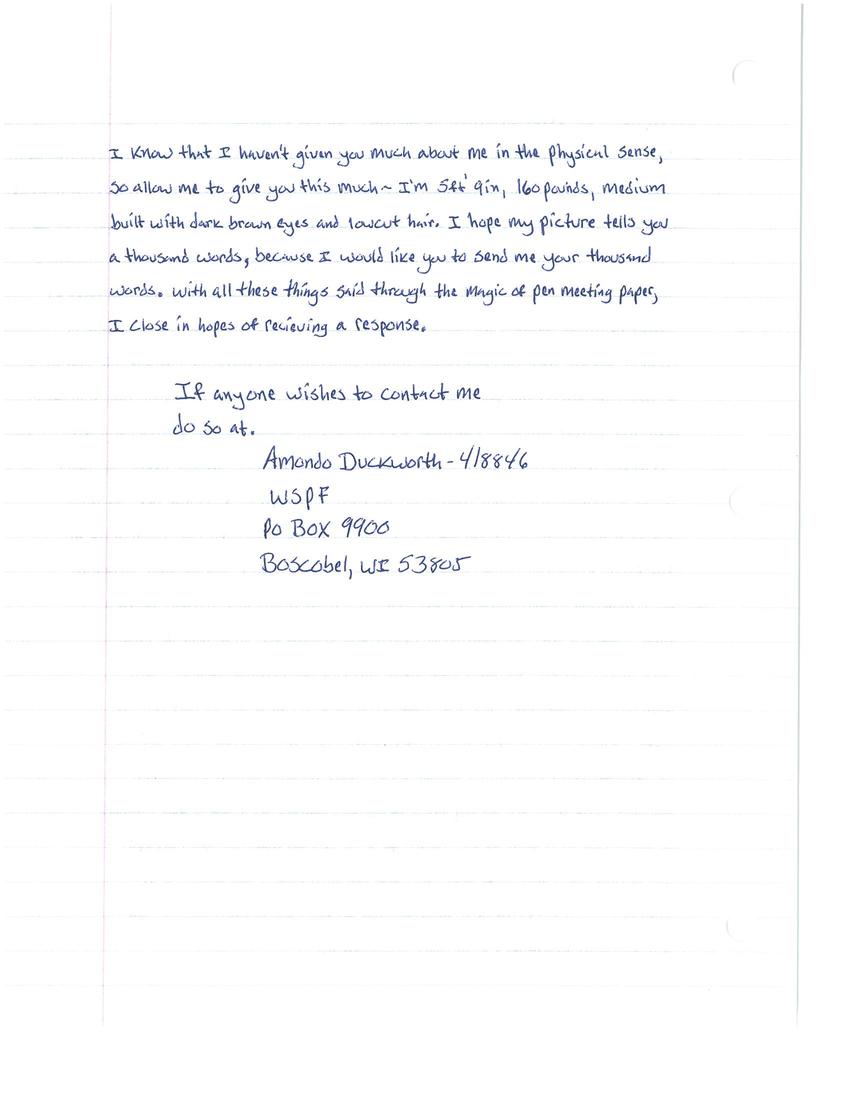 I know that I haven't given you much about me in the physical sense,
so allow me to give you this much ~ I'm 5ft' 9in, 160 pounds, medium
built with dark brown eyes and lowcut hair. I hope my picture tells you
a thousand words, because I would like you to send me your thousand
words. With all these things said through the magic of pen meeting paper,
I close in hopes of recieving a response.
If anyone wishes to contact me
do so at.
Amondo Duckworth - 418846
WSPF
PO BOX 9900
Boscobel, WI 53805